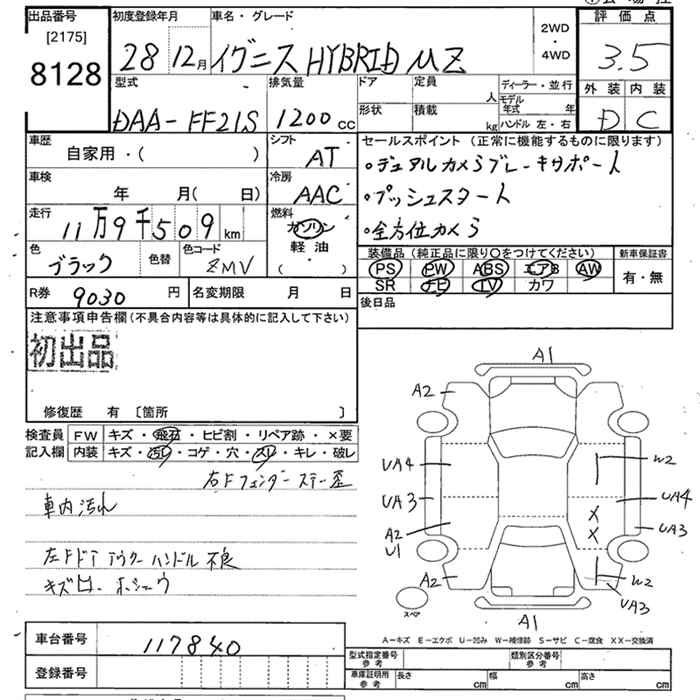 出品番号
[2175]
8128
初度登録年月
28 12月
車名・グレード
イグニス HYBRID MZ
2WD
・
4WD
評価点
3.5
外装 内装
D C
型式
DAA-FF21S
排気量
1200 cc
ドア
定員
人
形状
積載
kg
ディーラー・並行
モデル年式 年
ハンドル 左・右
車歴
自家用・( )
シフト
AT
セールスポイント (正常に機能するものに限ります)
・デュアルカメラブレーキサポート
・プッシュスタート
・全方位カメラ
車検
年 月(日)
冷房
AAC
走行
11万9千509km
燃料
ガソリン
軽油
( )
色
ブラック
色替
色コード
ZMV
装備品(純正品に限り〇をつけてください)
PS PW ABS エアB AW
SR ナビ TV カワ
新車保証書
有・無
R券
9030円
名変期限 月 日
後日品
注意事項申告欄(不具合内容等は具体的に記入して下さい)
初出品
修復歴 有 〔箇所 〕
検査員
記入欄
FW キズ・飛石・ヒビ割・リペア跡・×要
内装 キズ・汚れ・コゲ・穴・スレ・キレ・破レ
右Fフェンダーステー歪
車内汚れ
左FドアアウターハンドルD不良
キズ凹 ホシュウ
A1
A2
UA4
W2
UA3
UA4
A2
U1
UA3
A2
W2
UA3
スペア
A1
A-キズ E-エクボ U-凹み W-補修跡 S-サビ C-腐食 XX-交換済
車台番号
117840
登録番号
型式指定番号
参考
類別区分番号
参考
車庫証明用
参考
長さ cm
幅 cm
高さ cm